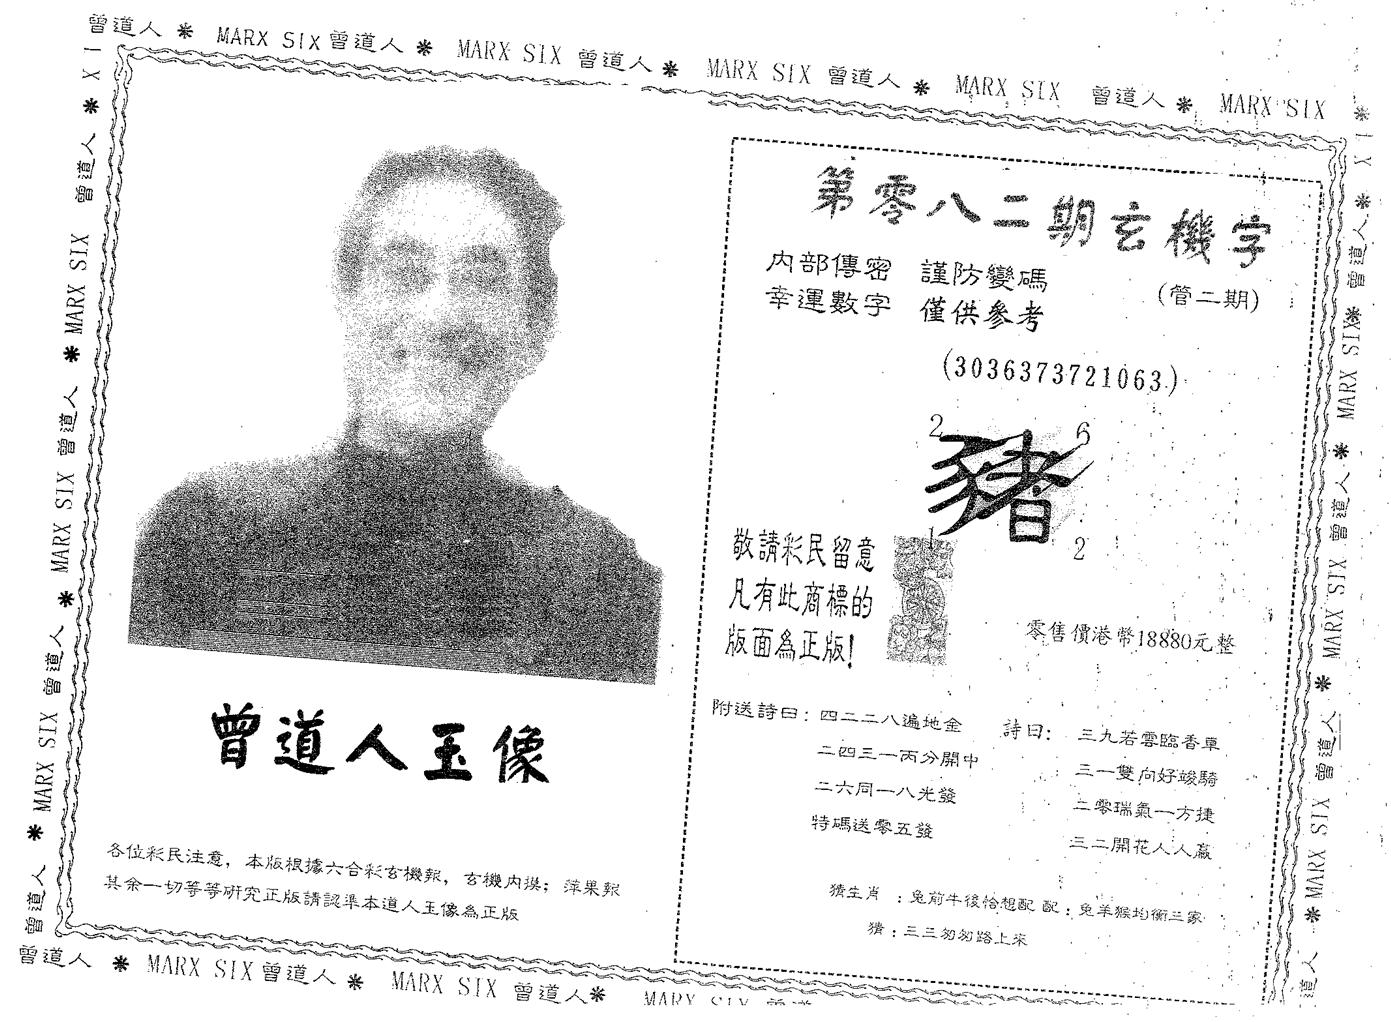 曾道人 ＊ MARX SIX 曾道人 ＊ MARX SIX 曾道人 ＊ MARX SIX 曾道人 ＊ MARX SIX 曾道人 ＊ MARX SIX ＊
第零八二期玄機字
內部傳密 謹防變碼
幸運數字 僅供參考
(管二期)
(3036373721063)
2 6
豬
1 2
敬請彩民留意
凡有此商標的
版面為正版!
零售價港幣18880元整
曾道人玉像
附送詩曰: 四二二八遍地金
二四三一丙分開中
二六同一八光發
特碼送零五發
詩曰: 三九若雲臨香車
三一雙向好竣騎
二零瑞氣一方捷
三二開花人人贏
各位彩民注意, 本版根據六合彩玄機報, 玄機內摸; 萍果報
其余一切等等研究正版請認準本道人玉像為正版
猜生肖 : 兔前牛後恰想配 配: 兔羊猴均衡三家
猜: 三三匆匆路上來
曾道人 ＊ MARX SIX 曾道人 ＊ MARX SIX 曾道人 ＊ MARX SIX 曾道人
曾道人 ＊ MARX SIX 曾道人 ＊ MARX SIX 曾道人 ＊ MARX SIX 曾道人 ＊
曾道人 ＊ MARX SIX 曾道人 ＊ MARX SIX 曾道人 ＊ MARX SIX 曾道人 ＊